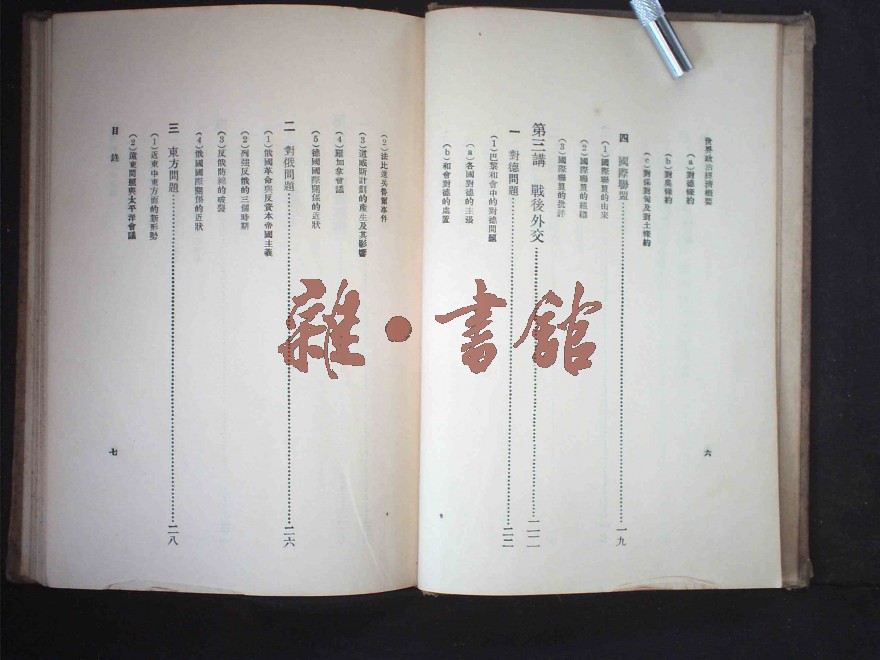 世界政治經濟概要
(a)對德條約
(b)對奧條約
(c)對保對匈及對土條約
四 國際聯盟……一九
(1)國際聯盟的由來
(2)國際聯盟的組織
(3)國際聯盟的批評
第三講 戰後外交……二二
一 對德問題……二二
(1)巴黎和會中的對德問題
(a)各國對德的主張
(b)和會對德的處置
六
(2)法比進兵魯爾事件
(3)道威斯計劃的產生及其影響
(4)羅加拿會議
(5)德國國際關係的近狀
二 對俄問題……二六
(1)俄國革命與反資本帝國主義
(2)列強反俄的三個時期
(3)反俄防線的破裂
(4)俄國國際關係的近狀
三 東方問題……二八
(1)近東中東方面的新形勢
(2)遠東問題與太平洋會議
目錄
七
雜·書館